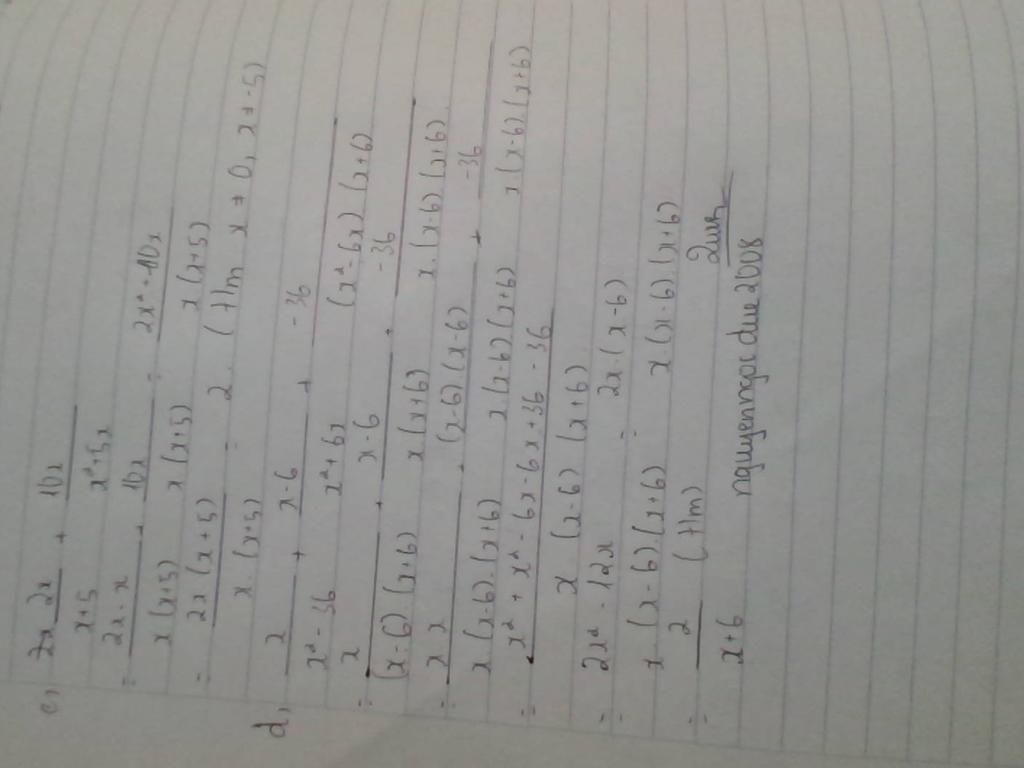 c, 2x 2x/x+5 + 10x/x²+5x
= 2x.x/x(x+5) + 10x/x(x+5) = 2x²+10x/x(x+5)
= 2x(x+5)/x.(x+5) = 2. (tm x ≠ 0, x ≠ -5)
d, x/x²-36 + x-6/x²+6x + -36/(x²-6x)(x+6)
= x/(x-6)(x+6) + x-6/x(x+6) + -36/x.(x-6)(x+6)
= x.x/x(x-6).(x+6) + (x-6)(x-6)/x(x-6)(x+6) + -36/x(x-6)(x+6)
= x²+x²-6x-6x+36-36/x(x-6)(x+6)
= 2x²-12x/x(x-6)(x+6) = 2x.(x-6)/x(x-6).(x+6)
= 2/x+6 (tm)
nguyenngocduc2008